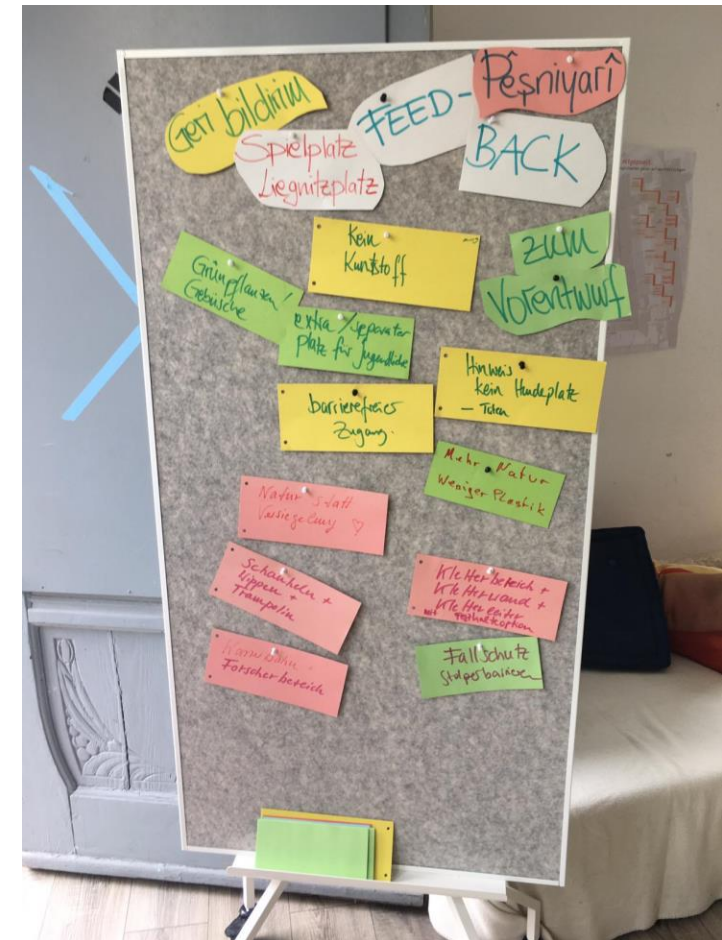 Geri bildirim
FEED-
Pêşniyarî
BACK
Spielplatz
Liegnitzplatz
zum
Vorentwurf
Kein
Kunststoff
Grünpflanzen/
Gebüsche
extra/separater
platz für Jugendliche
Hinweis
kein Hundeplatz
barrierefreier
Zugang.
Mehr Natur
Weniger Plastik
Natur statt
Versiegelung ♡
Schaukeln +
Wippen +
Trampolin
Kletterbereich +
Kletterwand +
Klettergitter
Forscherbereich
Fallschutz